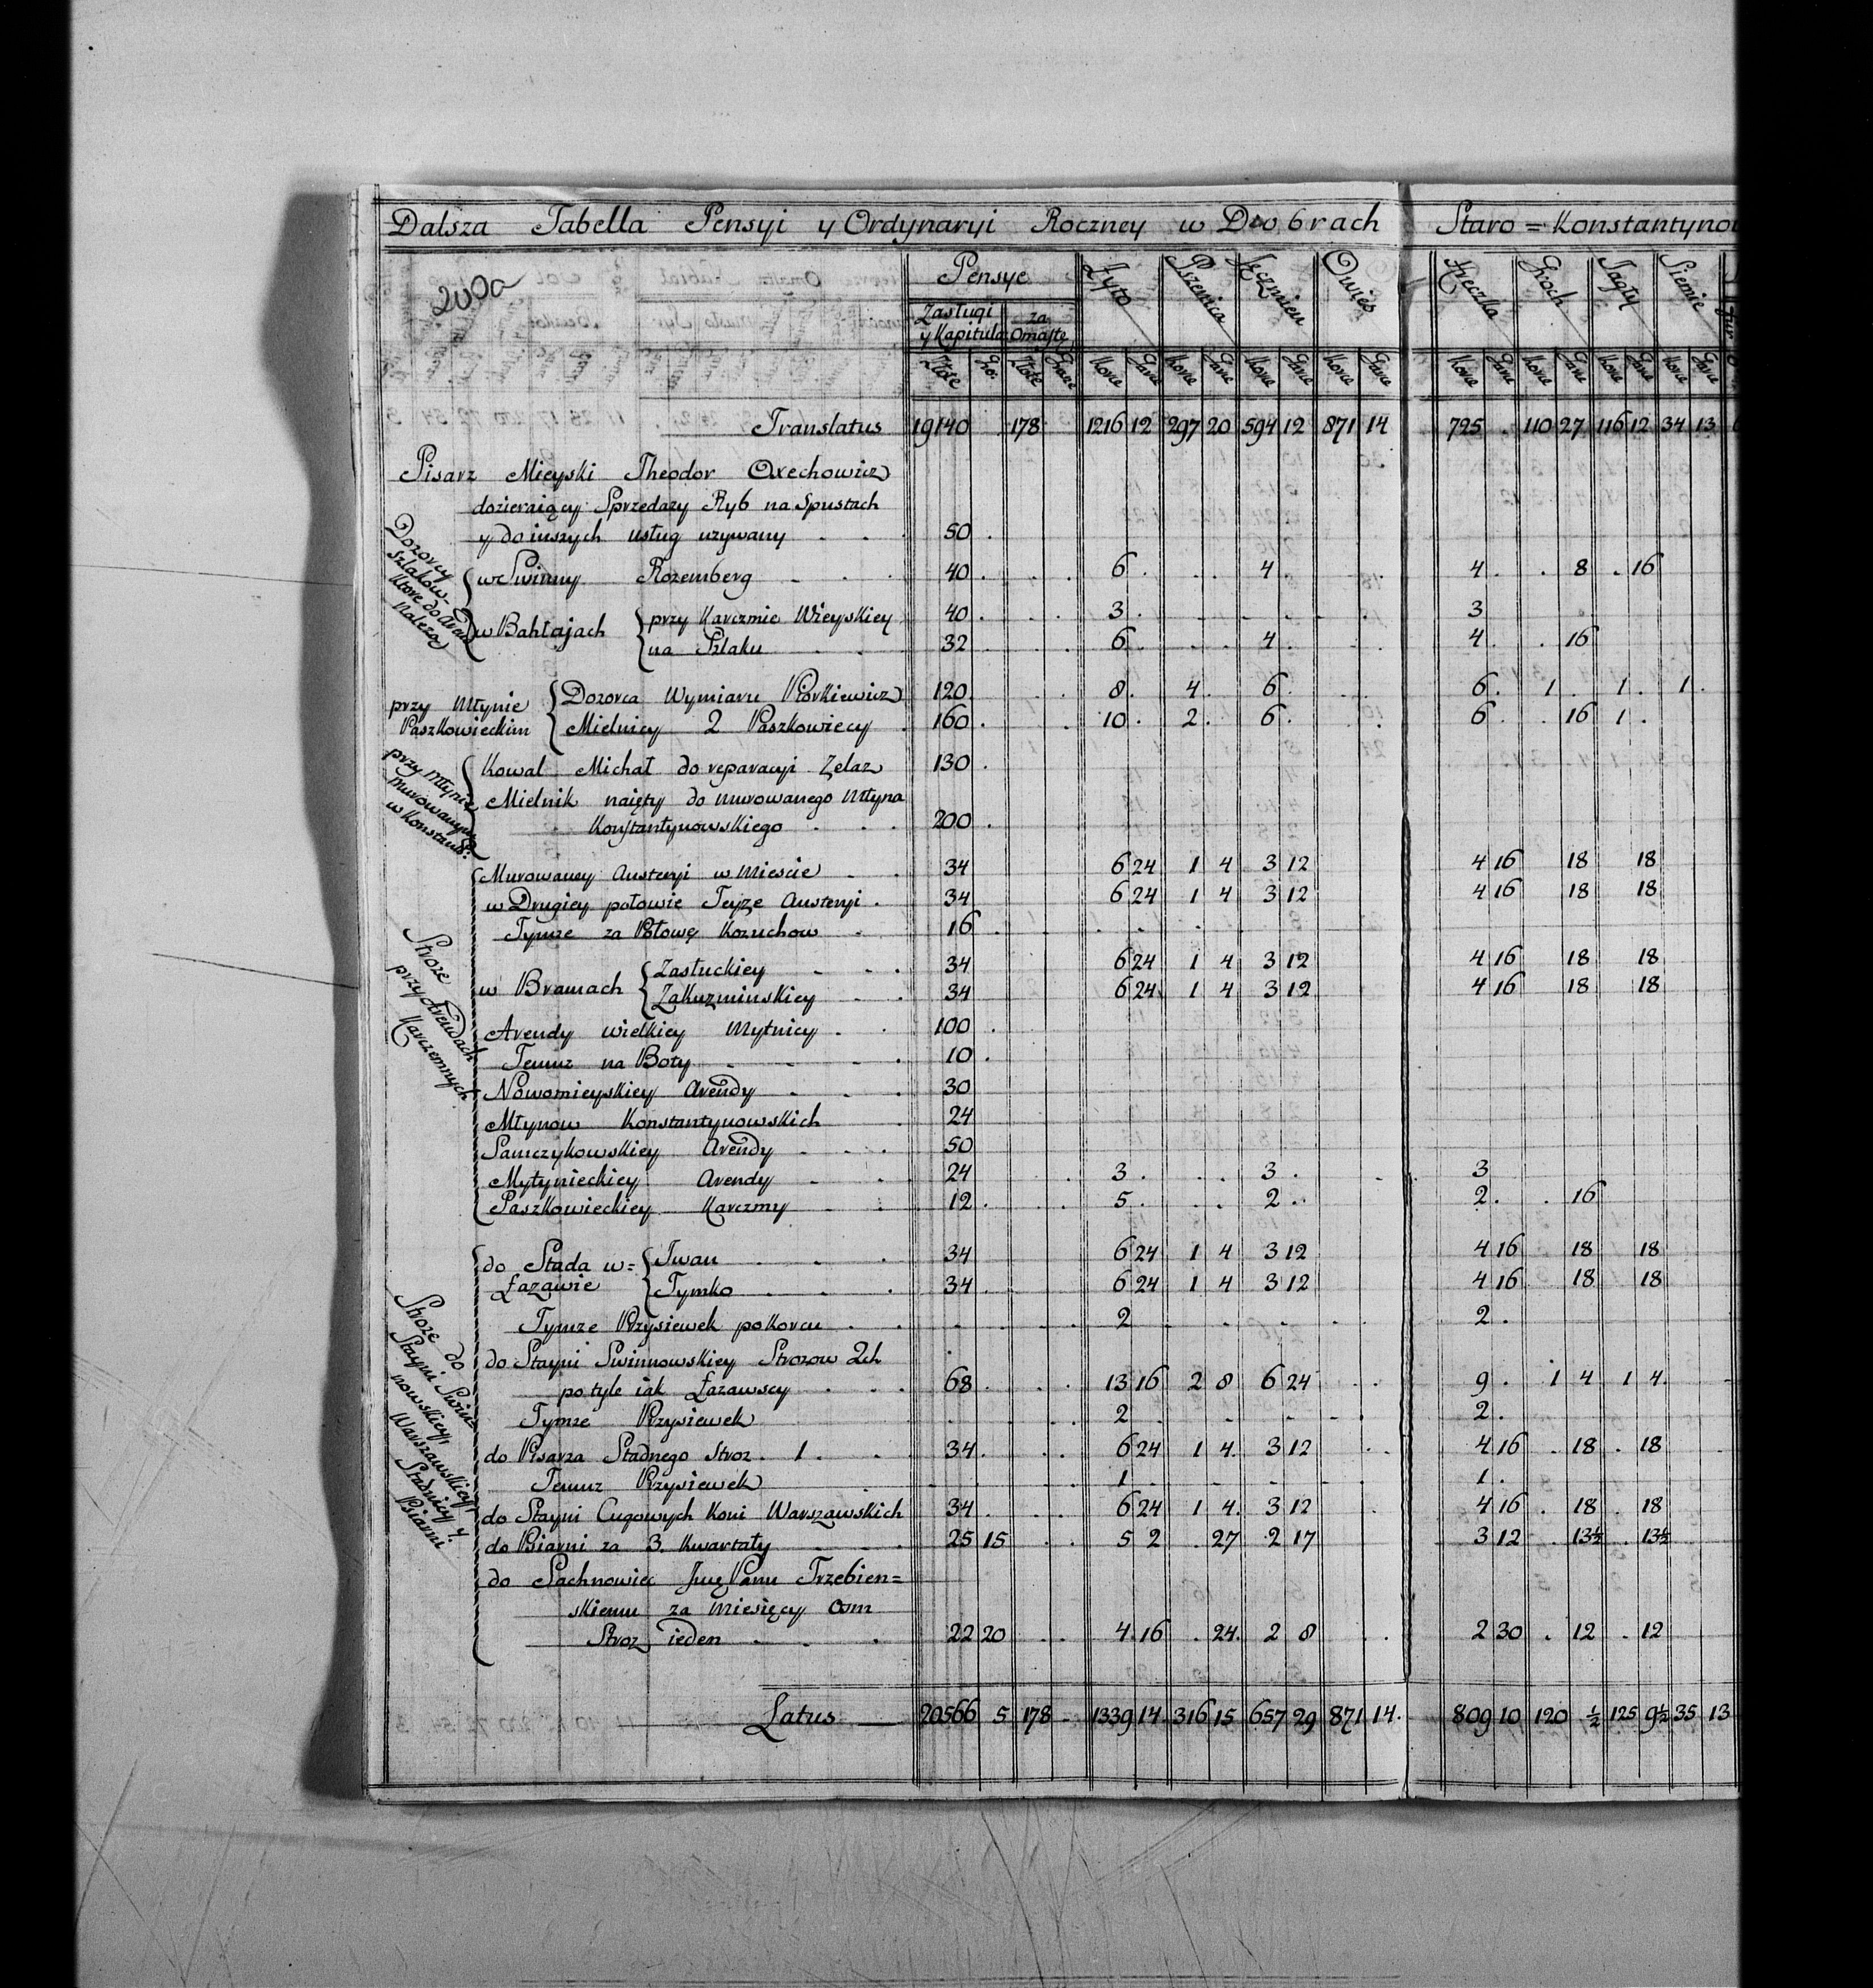 Dalsza Tabella Pensyi y Ordynaryi Roczney w Dobrach Staro = Konstantynow
Pensye Zyto Pszenica Jęczmien Owies Hreczka Groch Jagły Siemie
Zasługi y Kapitula za Omastę
Złote Gr: Złote Grosze Korce Garce Korce Garce Korce Garce Korce Garce Korce Garce Korce Garce Korce Garce Korce Garce
Translatus 19140 178 1216 12 297 20 594 12 871 14 725 . 110 27 116 12 34 13
Pisarz Mieyski Theodor Orechowicz
dozieraiący Sprzedaży Ryb na Spustach
y do inszych usług uzywany . . 50 .
Dozorcy szlaków ktore do Arend należą
w Swinny Rozemberg 40 . 6 . 4 . 4 . . 8 . 16
w Bahłajach przy Karczmie Wieyskiey 40 . 3 . 3
na Szlaku 32 . 6 . 4 . 4 . . 16
przy Młynie Paszkowieckim
Dozorca Wymiaru Piorkiewicz 120 8 . 4 . 6 . 6 . 1 . 1 . 1 .
Mielnicy 2 Paszkowiecy . 160 . 10 . 2 . 6 . 6 . . 16 1 .
przy Młynie Murowanym w Konstant:
Kowal Michał do reparacyi Zelaz 130 .
Mielnik naięty do murowanego Młyna
Konstantynowskiego . . 200 .
Stroze przy Arendach Karczemnych
Murowaney Austeryi w Miescie . . 34 6 24 1 4 3 12 4 16 18 18
w Drugiey połowie Teyze Austeryi . 34 6 24 1 4 3 12 4 16 18 18
Tymze za Połowę Kozuchow . 16 .
w Bramach Zasłuckiey . . . 34 6 24 1 4 3 12 4 16 18 18
Zakuzminskiey . . 34 6 24 1 4 3 12 4 16 18 18
Arendy wielkiey Mytnicy . . 100 .
Temuz na Boty . . . 10 .
Nowomieyskiey Arendy . . . 30
Młynow Konstantynowskich . 24
Samczykowskiey Arendy . . . 50
Mytynieckiey Arendy . . 24 3 . 3 . 3
Paszkowieckiey Karczmy . . 12 . 5 . 2 . 2 . . 16
Stroze do Stayni Swinnowskiey, Warszawskiey, Stadnicy y Psiarni
do Stada w= Łazawie Iwan . . . 34 6 24 1 4 3 12 4 16 18 18
Tymko . . . 34 6 24 1 4 3 12 4 16 18 18
Tymze Przysiewek po Korcu . . 2 2 .
do Stayni Swinnowskiey Strozow 2ch
po tyle iak Łazawscy . . . 68 . 13 16 2 8 6 24 9 . 1 4 1 4
Tymze Przysiewek 2 2 .
do Pisarza Stadnego Stroz . 1 . . 34 . 6 24 1 4 3 12 4 16 . 18 . 18
Temuz Przysiewek 1 1 .
do Stayni Cugowych Koni Warszawskich 34 . 6 24 1 4 3 12 4 16 . 18 . 18
do Psiarni za 3. Kwartały . . . 25 15 5 2 . 27 2 17 3 12 . 13½ . 13½
do Pachnowiec Panu Trzebien=
skiemu za Miesięcy Osm
Stroz ieden . . . 22 20 4 16 . 24 2 8 2 30 . 12 . 12
Latus 20566 5 178 1339 14 316 15 657 29 871 14 809 10 120 ½ 125 9½ 35 13